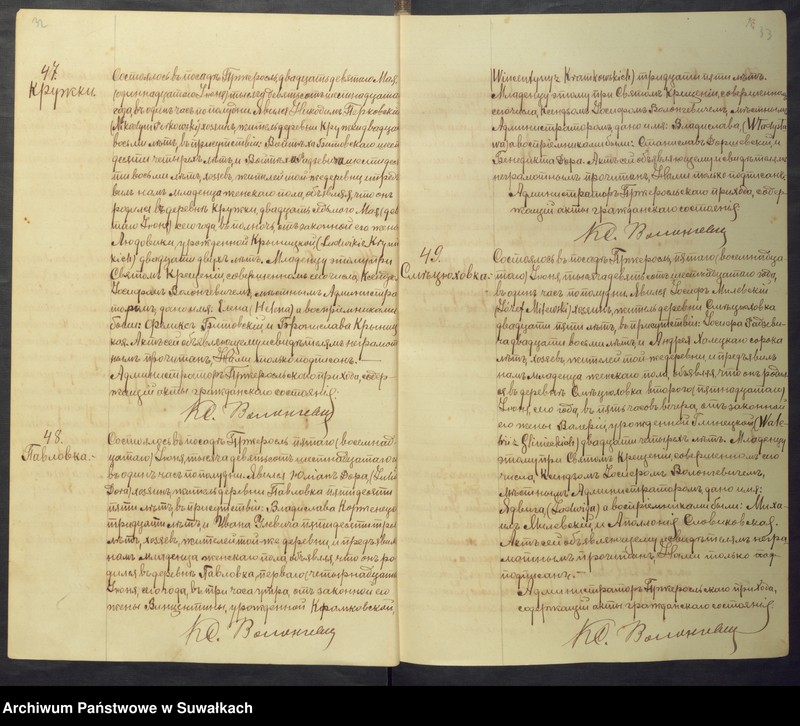 32
47.
Кружки.
Состоялось въ посадѣ Пржеросль двадцать девятаго Мая,
(одиннадцатаго Іюня) тысяча девятьсотъ шестнадцатаго
года въ одинъ часъ пополудни. Явился Никодимъ Пірковскій
(Nikodym Pirkowski) хозяинъ, житель деревни Кружки двадцати
восьми лѣтъ, въ присутствіи:
десяти четырехъ лѣтъ и
ти восьми лѣтъ, хозяевъ, жителей той же деревни и предъя-
вилъ намъ младенца женскаго пола, объявляя, что онъ
родился въ деревнѣ Кружки, двадцать седьмого Мая (девя-
таго Іюня) сего года, въ полночь, отъ законной его жены
Людовики, урожденной Крыницкой (Ludwikie Krynic-
kich) двадцати двухъ лѣтъ. Младенцу этому при
Святомъ Крещеніи совершенномъ сего числа, Ксендзомъ
Іосифомъ Волонгевичемъ, мѣстнымъ Администра-
торомъ дано имя: Елена (Helena) а воспріемниками
были: Феликсъ и Бронислава Крыниц-
кая. Актъ сей объявляющему и свидѣтелямъ неграмот-
нымъ прочитанъ, Нами только подписанъ.
Администраторъ Пржеросльскаго прихода, содер-
жащій акты гражданскаго состоянія
Кс. Волонгевичъ
48.
Павловка.
Состоялось въ посадѣ Пржеросль пятаго (восемнад-
цатаго) Іюня, тысяча девятьсотъ шестнадцатаго года
въ одинъ часъ пополудни. Явился Юліанъ Дора (Julian
Dora) хозяинъ, житель деревни Павловка пятидесяти
пяти лѣтъ, въ присутствіи: Владислава
тридцати лѣтъ, и Ивана пятидесяти три
лѣтъ, хозяевъ, жителей той же деревни, и предъявилъ
намъ младенца женскаго пола, объявляя что онъ ро-
дился въ деревнѣ Павловка, перваго (четырнадцатаго)
Іюня, сего года, въ три часа утра, отъ законной его
жены Винцентины, урожденной Крамковской,
Кс. Волонгевичъ
33
Wincentyny z Kramkowskich) тридцати пяти лѣтъ.
Младенцу этому при Святомъ Крещеніи, совершенномъ
сего числа, Ксендзомъ Іосифомъ Волонгевичемъ, мѣстнымъ
Администраторомъ дано имя: Владислава (Władysła-
wa) а воспріемниками были: Станиславъ и
Бенедикта Дора. Актъ сей объявляющему и свидѣтелямъ
неграмотнымъ прочитанъ, Нами только подписанъ.
Администраторъ Пржеросльскаго прихода, содер-
жащій акты гражданскаго состоянія
Кс. Волонгевичъ
49.
Смѣцюховка.
Состоялось въ посадѣ Пржеросль, пятаго (восемнадца-
таго) Іюня, тысяча девятьсотъ шестнадцатаго года,
въ одинъ часъ пополудни. Явился Іосифъ Милевскій
(Józef Milewski) хозяинъ, житель деревни Смѣцюховка
двадцати пяти лѣтъ, въ присутствіи: Іосифа
двадцати восьми лѣтъ, и Андрея сорока
лѣтъ, хозяевъ, жителей той же деревни, и предъявилъ
намъ младенца женскаго пола, объявляя что онъ родил-
ся въ деревнѣ Смѣцюховка второго (пятнадцатаго)
Іюня, сего года, въ пять часовъ вечера, отъ законной
его жены Валеріи, урожденной Глинецкой (Wale-
rii z Glinieckich) двадцати четырехъ лѣтъ. Младенцу
этому при Святомъ Крещеніи, совершенномъ сего
числа, Ксендзомъ Іосифомъ Волонгевичемъ,
мѣстнымъ Администраторомъ, дано имя:
Ядвига (Jadwiga) а воспріемниками были: Миха-
илъ Милевскій и Аполлонія Словиковская.
Актъ сей объявляющему и свидѣтелямъ негра-
мотнымъ прочитанъ, Нами только
подписанъ.
Администраторъ Пржеросльскаго прихода,
содержащій акты гражданскаго состоянія
Кс. Волонгевичъ
Archiwum Państwowe w Suwałkach